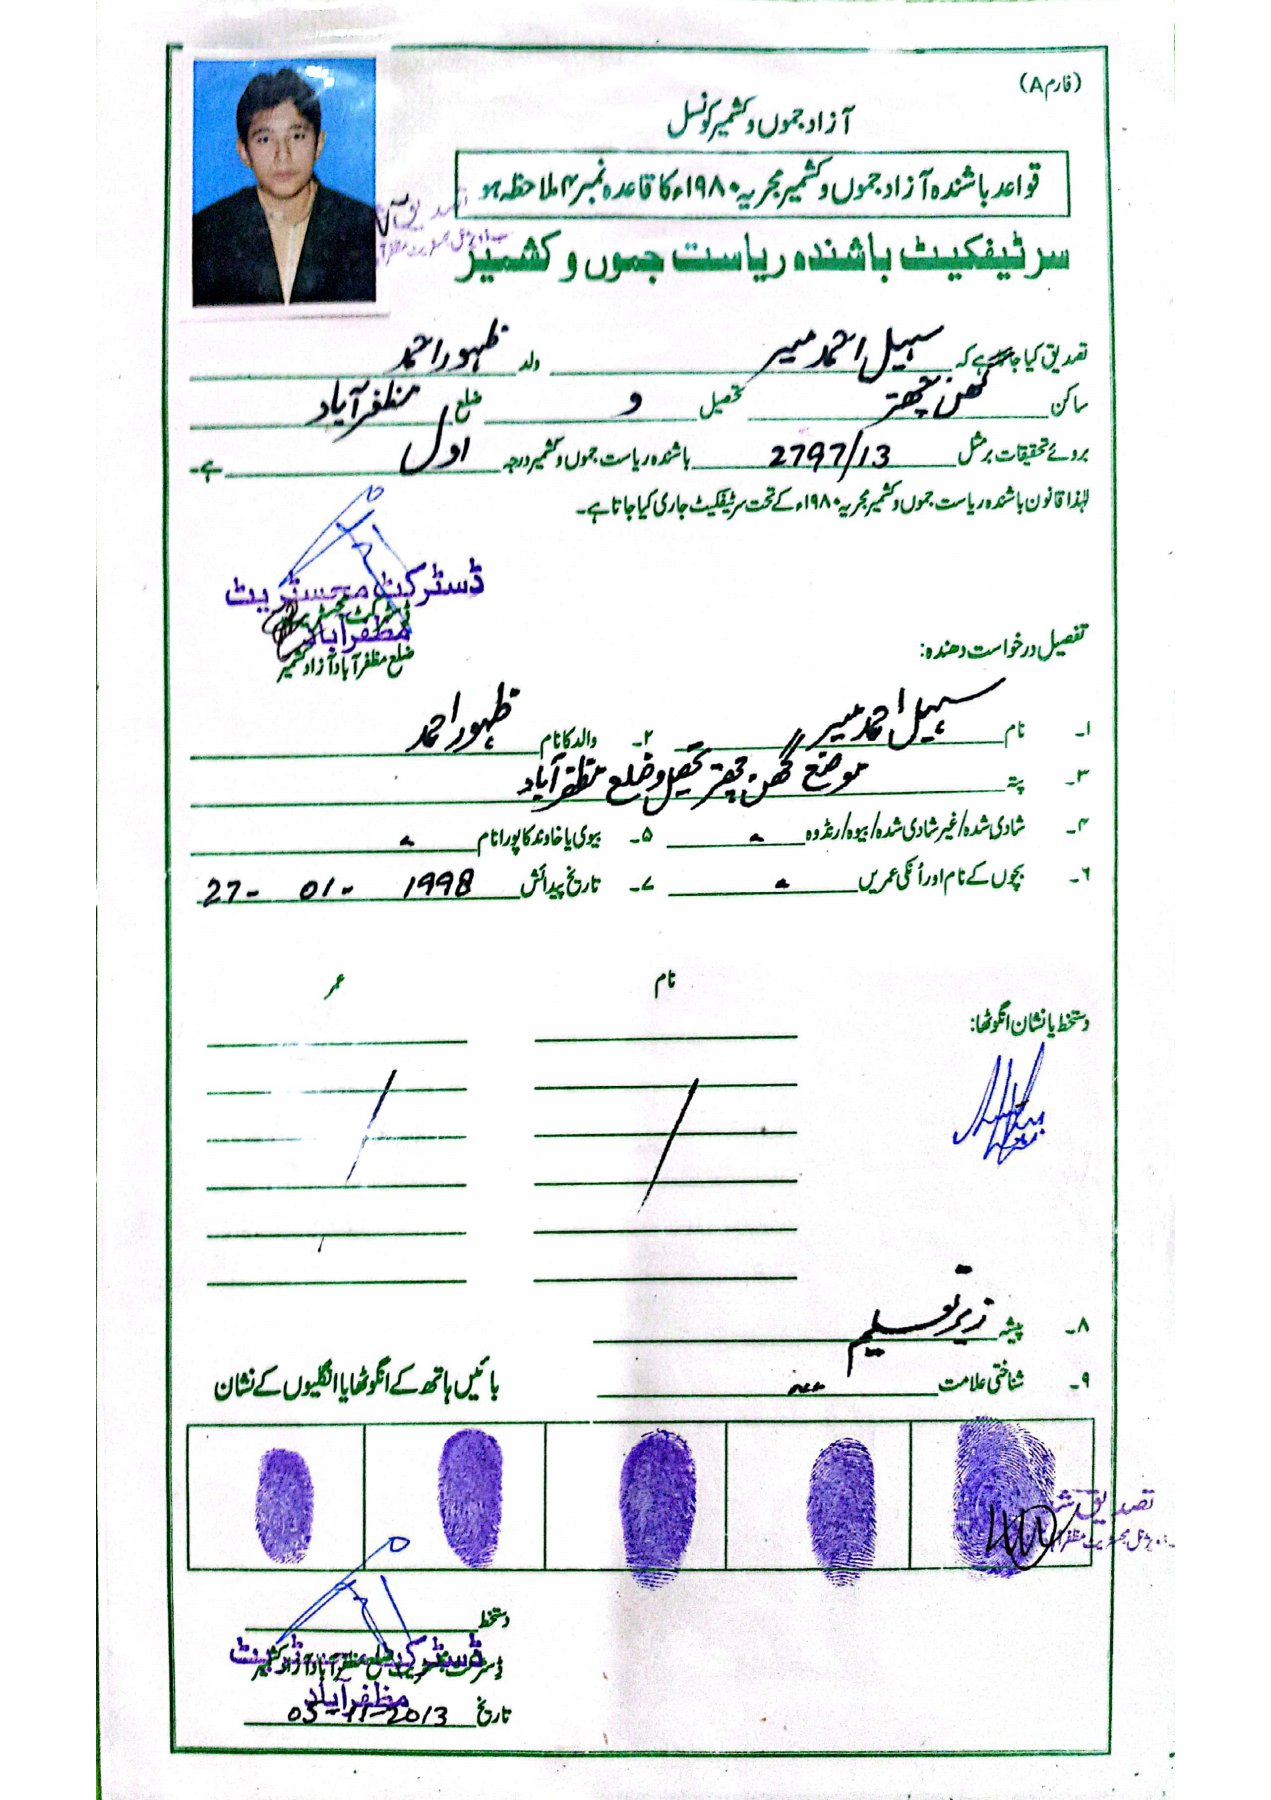 (فارم A)
آزاد جموں و کشمیر کونسل
قواعد باشندہ آزاد جموں و کشمیر مجریہ ۱۹۸۰ء کا قاعدہ نمبر ۴ ملاحظہ ہو
سرٹیفکیٹ باشندہ ریاست جموں و کشمیر
تصدیق کیا جاتا ہے کہ سہیل احمد میر ولد ظہور احمد
ساکن گھن چھتر تحصیل و ضلع مظفرآباد
بروئے تحقیقات بر مثل 2797/13 باشندہ ریاست جموں و کشمیر درجہ اول ہے۔
لہٰذا قانون باشندہ ریاست جموں و کشمیر مجریہ ۱۹۸۰ء کے تحت سرٹیفکیٹ جاری کیا جاتا ہے۔
ڈسٹرکٹ مجسٹریٹ
ڈسٹرکٹ مجسٹریٹ
مظفرآباد
ضلع مظفرآباد آزاد کشمیر
تفصیل درخواست دھندہ:
۱۔ نام سہیل احمد میر ۲۔ والد کا نام ظہور احمد
۳۔ پتہ موضع گھن چھتر تحصیل و ضلع مظفرآباد
۴۔ شادی شدہ/غیر شادی شدہ/بیوہ/رنڈوہ - ۵۔ بیوی یا خاوند کا پورا نام -
۶۔ بچوں کے نام اور اُنکی عمریں - ۷۔ تاریخ پیدائش 27-01-1998
نام عمر
دستخط یا نشان انگوٹھا:
۸۔ پیشہ زیر تعلیم
۹۔ شناختی علامت --- بائیں ہاتھ کے انگوٹھا یا انگلیوں کے نشان
تصدیق
دستخط
ڈسٹرکٹ مجسٹریٹ
ڈسٹرکٹ مجسٹریٹ ضلع مظفرآباد آزاد کشمیر
مظفرآباد
تاریخ 05-11-2013